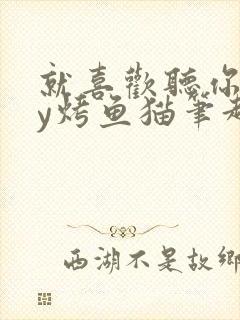 就喜歡聽你
y烤鱼猫筆趣
西湖不是故鄉